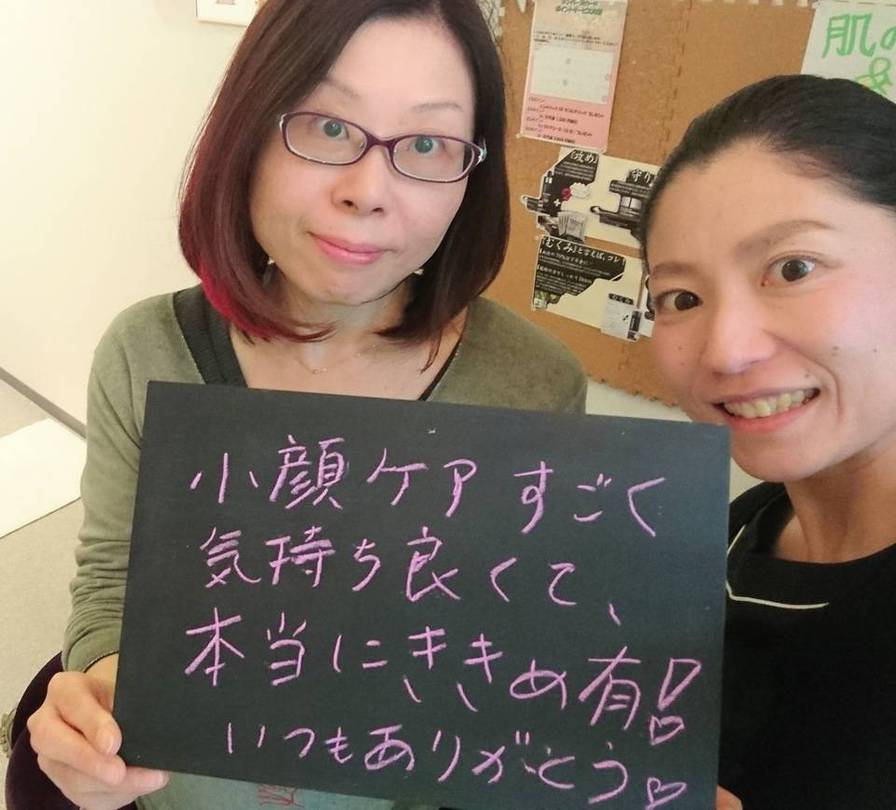 肌の
「攻め」
守り
「むくみ」と言えば、コレ!
小顔ケア すごく
気持ち良くて、
本当にききめ有!
いつもありがとう♡